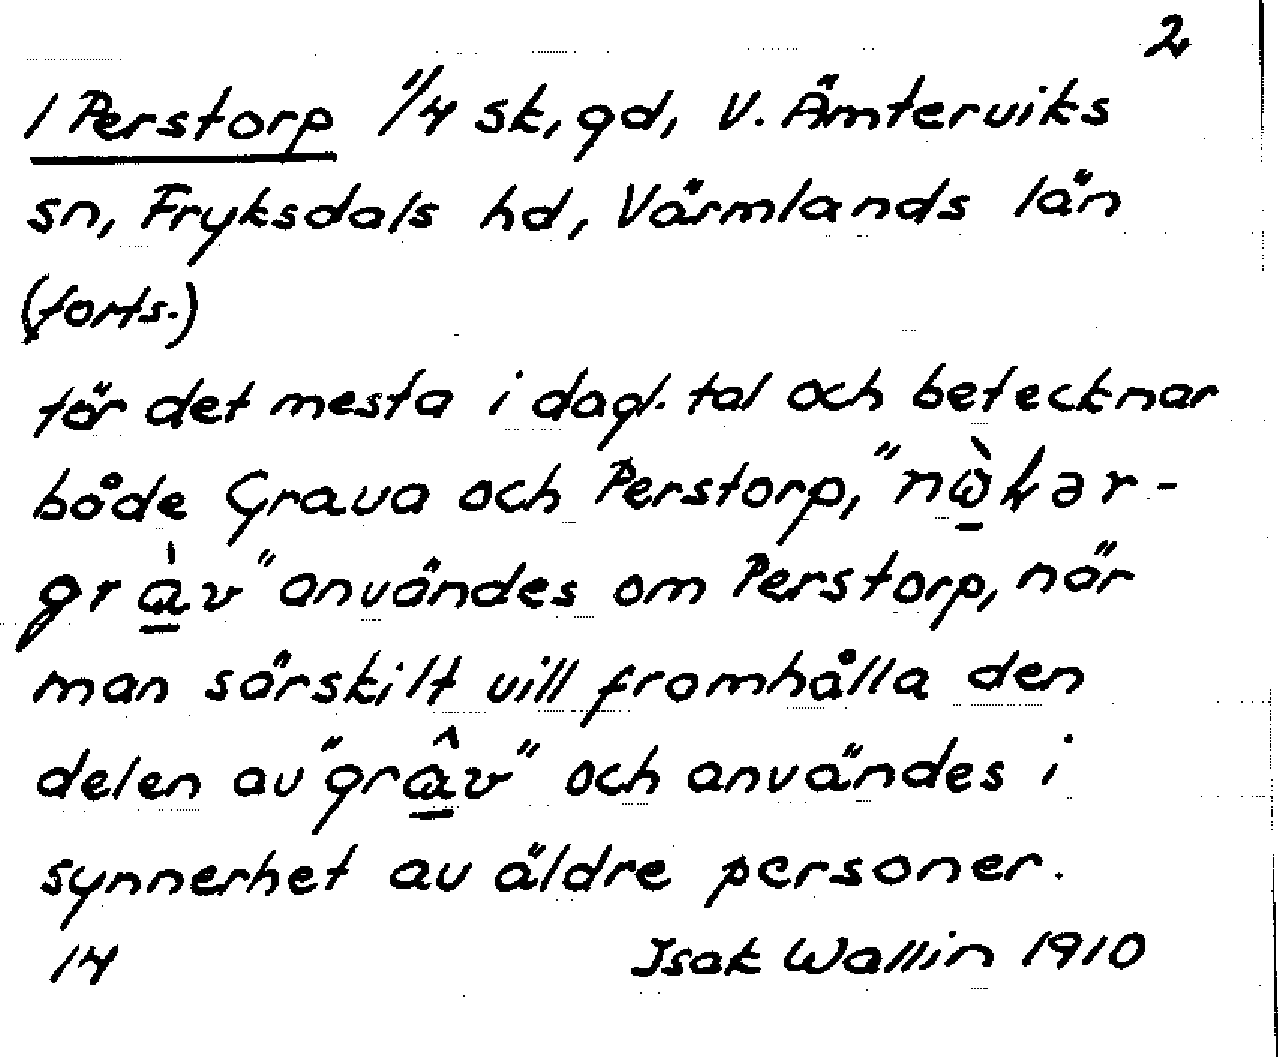 2
1 Perstorp 1/4 sk, gd, V. Ämterviks
sn, Fryksdals hd, Värmlands län
(forts.)
för det mesta i dagl. tal och betecknar
både Grava och Perstorp, "nὼ̲kər-
grà̲v" användes om Perstorp, när
man särskilt vill framhålla den
delen av "grâ̲v" och användes i
synnerhet av äldre personer.
14 Isak Wallin 1910